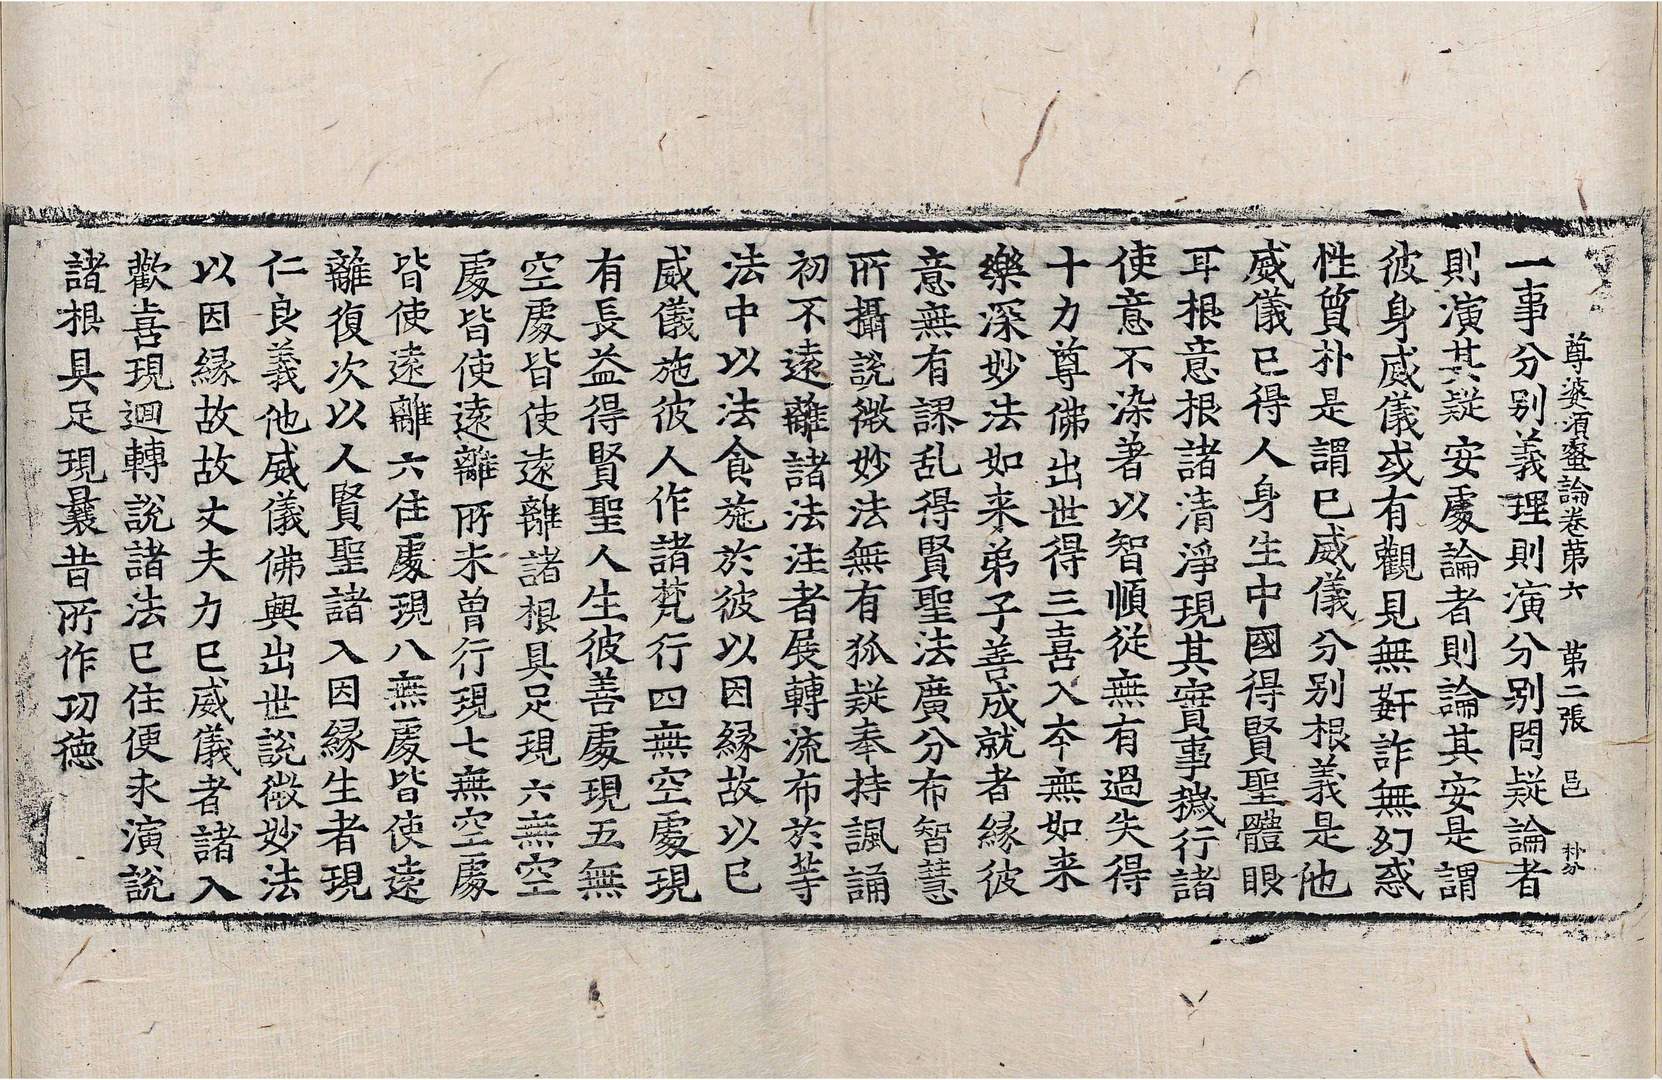 尊婆須蜜論卷第六 第二張 邑 朴芬
一事分別義理則演分別問疑論者
則演其疑安處論者則論其安是謂
彼身威儀或有觀見無姧詐無幻惑
性質朴是謂已威儀分別根義是他
威儀已得人身生中國得賢聖體眼
耳根意根諸清淨現其實事穢行諸
使意不染著以智順從無有過失得
十力尊佛出世得三喜入夲無如来
樂深妙法如来弟子善成就者縁彼
意無有謬乱得賢聖法廣分布智慧
所攝說微妙法無有狐疑奉持諷誦
初不遠離諸法注者展轉流布於等
法中以法食施於彼以因縁故以已
威儀施彼人作諸梵行四無空處現
有長益得賢聖人生彼善處現五無
空處皆使遠離諸根具足現六無空
處皆使遠離所未曾行現七無空處
皆使遠離六住處現八無處皆使遠
離復次以人賢聖諸入因縁生者現
仁良義他威儀佛興出世說微妙法
以因縁故故丈夫力已威儀者諸入
歡喜現迴轉說諸法已住便永演說
諸根具足現曩昔所作功徳